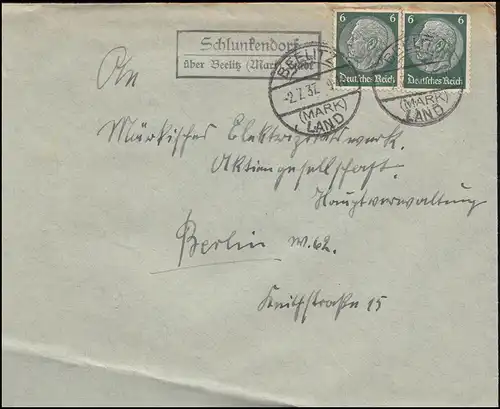 Schlunkendorf
über Beelitz (Mark) Land
6 6
Deutsches Reich Deutsches Reich
BEELITZ
-2.7.37
(MARK)
LAND
(MARK)
LAND
An
Märkisches Elektrizitätswerk.
Aktiengesellschaft.
Hauptverwaltung
Berlin W. 62.
Keithstraße 15